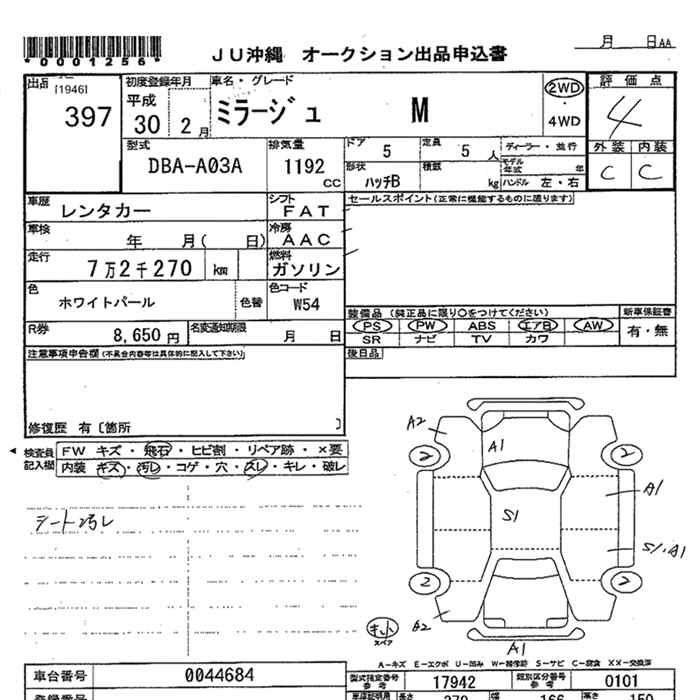 月 日AA
*0001256*
JU沖縄 オークション出品申込書
出品 [1946]
397
初度登録年月
平成
30 2月
車名・グレード
ミラージュ M
2WD
・
4WD
評価点
4
外装 内装
C C
型式
DBA-A03A
排気量
1192
CC
ドア
5
定員
5 人
ディーラー・並行
形状
ハッチB
積載
kg
モデル年式 年
ハンドル 左・右
車歴
レンタカー
シフト
FAT
セールスポイント(正常に機能するものに限ります)
車検
年 月( 日)
冷房
AAC
走行
7万2千270 km
燃料
ガソリン
色
ホワイトパール
色替
色コード
W54
装備品 (純正品に限り○をつけてください)
PS PW ABS エアB AW
SR ナビ TV カワ
新車保証書
有・無
R券
8,650 円
名変通知期限
月 日
後日品
注意事項申告欄 (不具合内容等は具体的に記入して下さい)
修復歴 有〔箇所 〕
検査員
記入欄
FW キズ・飛石・ヒビ割・リペア跡・×要
内装 キズ・汚レ・コゲ・穴・スレ・キレ・破レ
シート汚レ
A2
A1
2
2
A1
S1
S1,A1
2
2
A2
スペア
A1
A-キズ E-エクボ U-凹み W-補修跡 S-サビ C-腐食 XX-交換済
車台番号
0044684
型式指定番号
参考
17942
類別区分番号
参考
0101
登録番号
長さ
370
幅
166
高さ
150